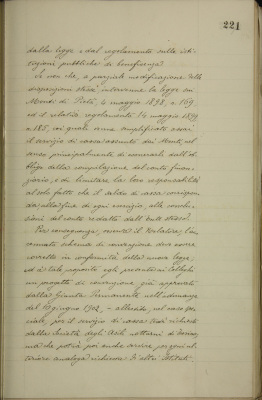 221
dalla legge e dal regolamento sulle isti-
tuzioni pubbliche di beneficenza.
Se non che, a parziale modificazione delle
disposizioni stesse intervenne la legge sui
Monti di Pietà, 4 maggio 1898, n. 169
ed il relativo regolamento 14 maggio 1899
n. 185, coi quali venne semplificato assai
il servizio di cassa assunto dai Monti, nel
senso principalmente di esonerarli dall'ob-
bligo della compilazione del conto finan-
ziario, e di limitare la loro responsabilità
al solo fatto che il saldo di cassa corrispon-
da alla fine di ogni esercizio alle
del conto redatto dall'Ente stesso.
Per conseguenza, osservò il Relatore, l'ac-
cennato schema di convenzione deve essere
corretto in conformità della nuova legge,
ed è tale rapporto egli presenta ai Colleghi
un progetto di convenzione già approvato
dalla Giunta Permanente nell'adunanza
del giugno 1902, - allestito nel caso spe-
ciale, per il servizio di cassa così richiesto
dalla Società degli Asili notturni di
ma che potrà poi anche servire per ogni ul-
teriore analoga richiesta di altri Istituti.